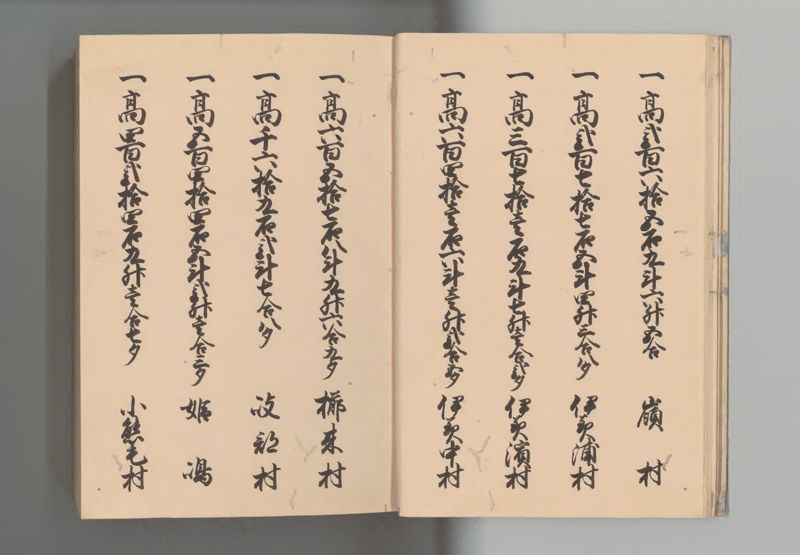 一高弐百六拾五石九斗六舛五合 嶺村
一高弐百七拾七石五斗四舛三合八夕 伊美浦村
一高三百七拾壱石九斗七舛壱合弐夕 伊美濱村
一高六百四拾壱石六斗壱舛弐合五夕 伊美中村
一高六百五拾七石八斗九舛六合九夕 櫛来村
一高千六拾九石弐斗七合八夕 岐部村
一高五百四拾四石五斗弐舛壱合三夕 姫嶋
一高四百弐拾四石九舛壱合七夕 小熊毛村